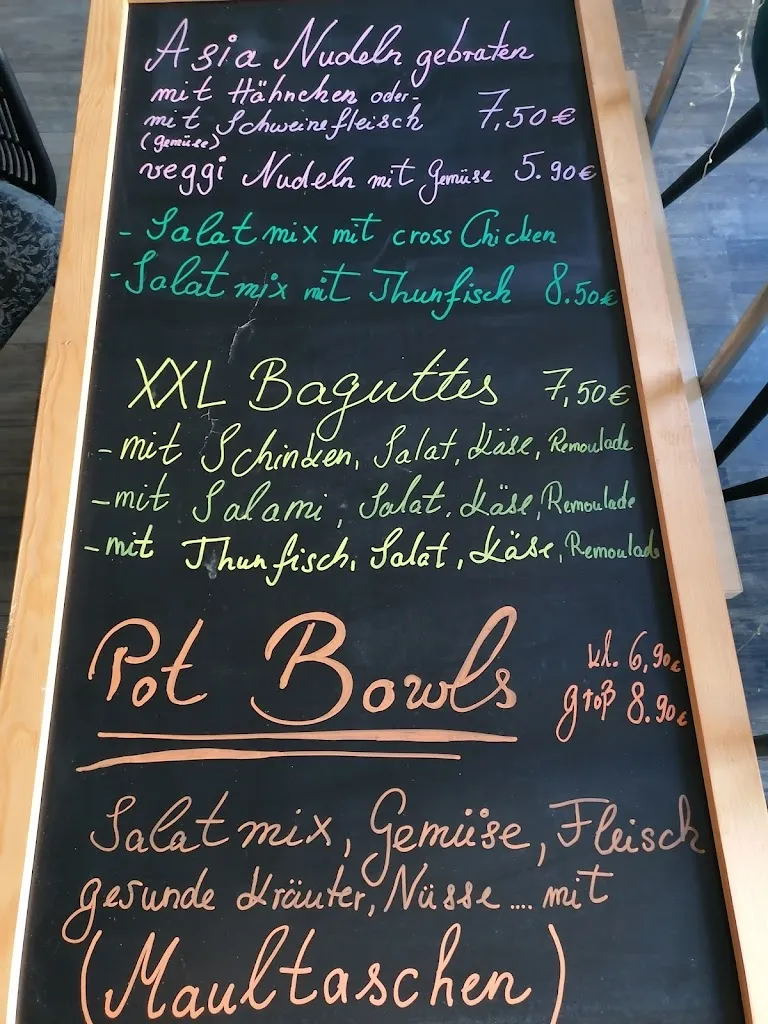 Asia Nudeln gebraten
mit Hähnchen oder-
mit Schweinefleisch 7,50€
(gemüse)
veggi Nudeln mit Gemüse 5.90€
- Salat mix mit cross Chicken
- Salat mix mit Thunfisch 8.50€
XXL Baguttes 7,50€
- mit Schinken, Salat, Käse, Remoulade
- mit Salami, Salat, Käse, Remoulade
- mit Thunfisch, Salat, Käse, Remoulade
Pot Bowls kl. 6,90€
groß 8.90€
Salat mix, Gemüse, Fleisch
gesunde Kräuter, Nüsse .... mit
(Maultaschen)